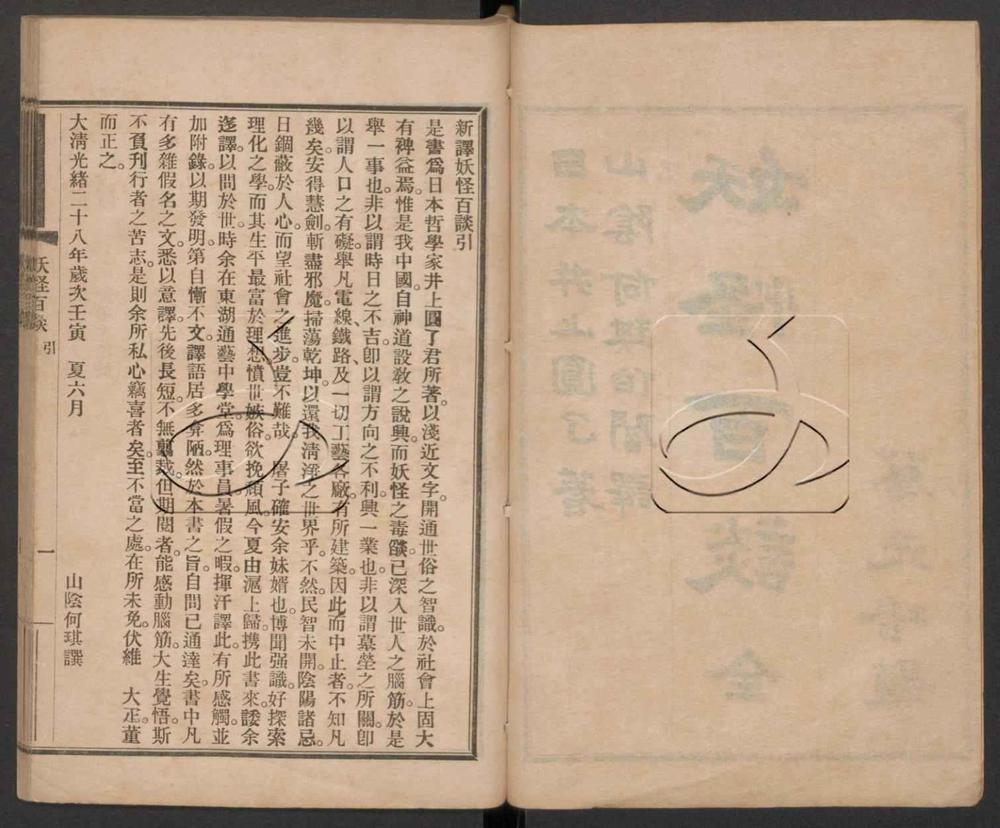 新譯妖怪百談引
是書爲日本哲學家井上圓了君所著。以淺近文字。開通世俗之智識。於社會上固大
有裨益焉。惟是我中國。自神道設敎之說興。而妖怪之毒燄。已深入世人之腦筋。於是
舉一事也。非以謂時日之不吉。卽以謂方向之不利。興一業也。非以謂墓塋之所關。卽
以謂人口之有礙。舉凡電線、鐵路、及一切工藝各廠。有所建築。因此而中止者。不知凡
幾矣。安得慧劍。斬盡邪魔。掃蕩乾坤。以還我淸淨之世界乎。不然民智未開。陰陽諸忌。
日錮蔽於人心。而望社會之進步。豈不難哉。屠子確安。余妹婿也。博聞强識。好探索
理化之學。而其生平最富於理想。憤世嫉俗。欲挽頹風。今夏由滬上歸。攜此書來。諉余
迻譯。以問於世。時余在東湖通藝中學堂爲理事員。暑假之暇。揮汗譯此。有所感觸。並
加附錄。以期發明。第自慚不文。譯語居多弇陋。然於本書之旨。自問已通達矣。書中凡
有多雜假名之文。悉以意譯。先後長短。不無翦裁。但期閱者。能感動腦筋。大生覺悟。斯
不負刊行者之苦志。是則余所私心竊喜者矣。至不當之處。在所未免。伏維　大正董
而正之。
大淸光緖二十八年歲次壬寅　夏六月　山陰何琪譔
妖怪百談　引　一